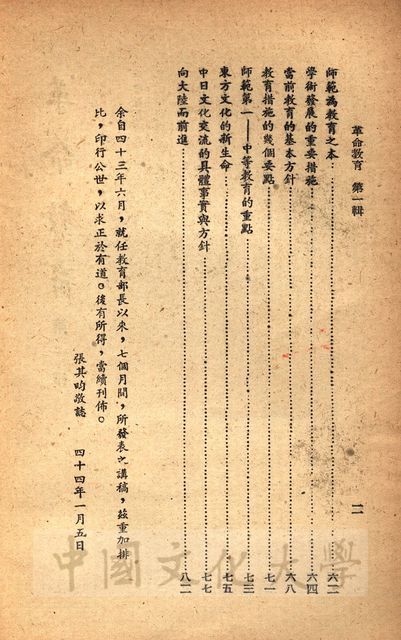 革命教育　第一輯　二
師範為教育之本……六二
學術發展的重要措施……六四
當前教育的基本方針……六八
教育措施的幾個要點……七一
師範第一——中等教育的重點……七三
東方文化的新生命……七五
中日文化交流的具體事實與方針……七七
向大陸而前進……八二
余自四十三年六月，就任教育部長以來，七個月間，所發表之講稿，茲重加排
比，印行公世，以求正於有道。後有所得，當續刊佈。
張其昀敬誌　四十四年一月五日
中國文化大學